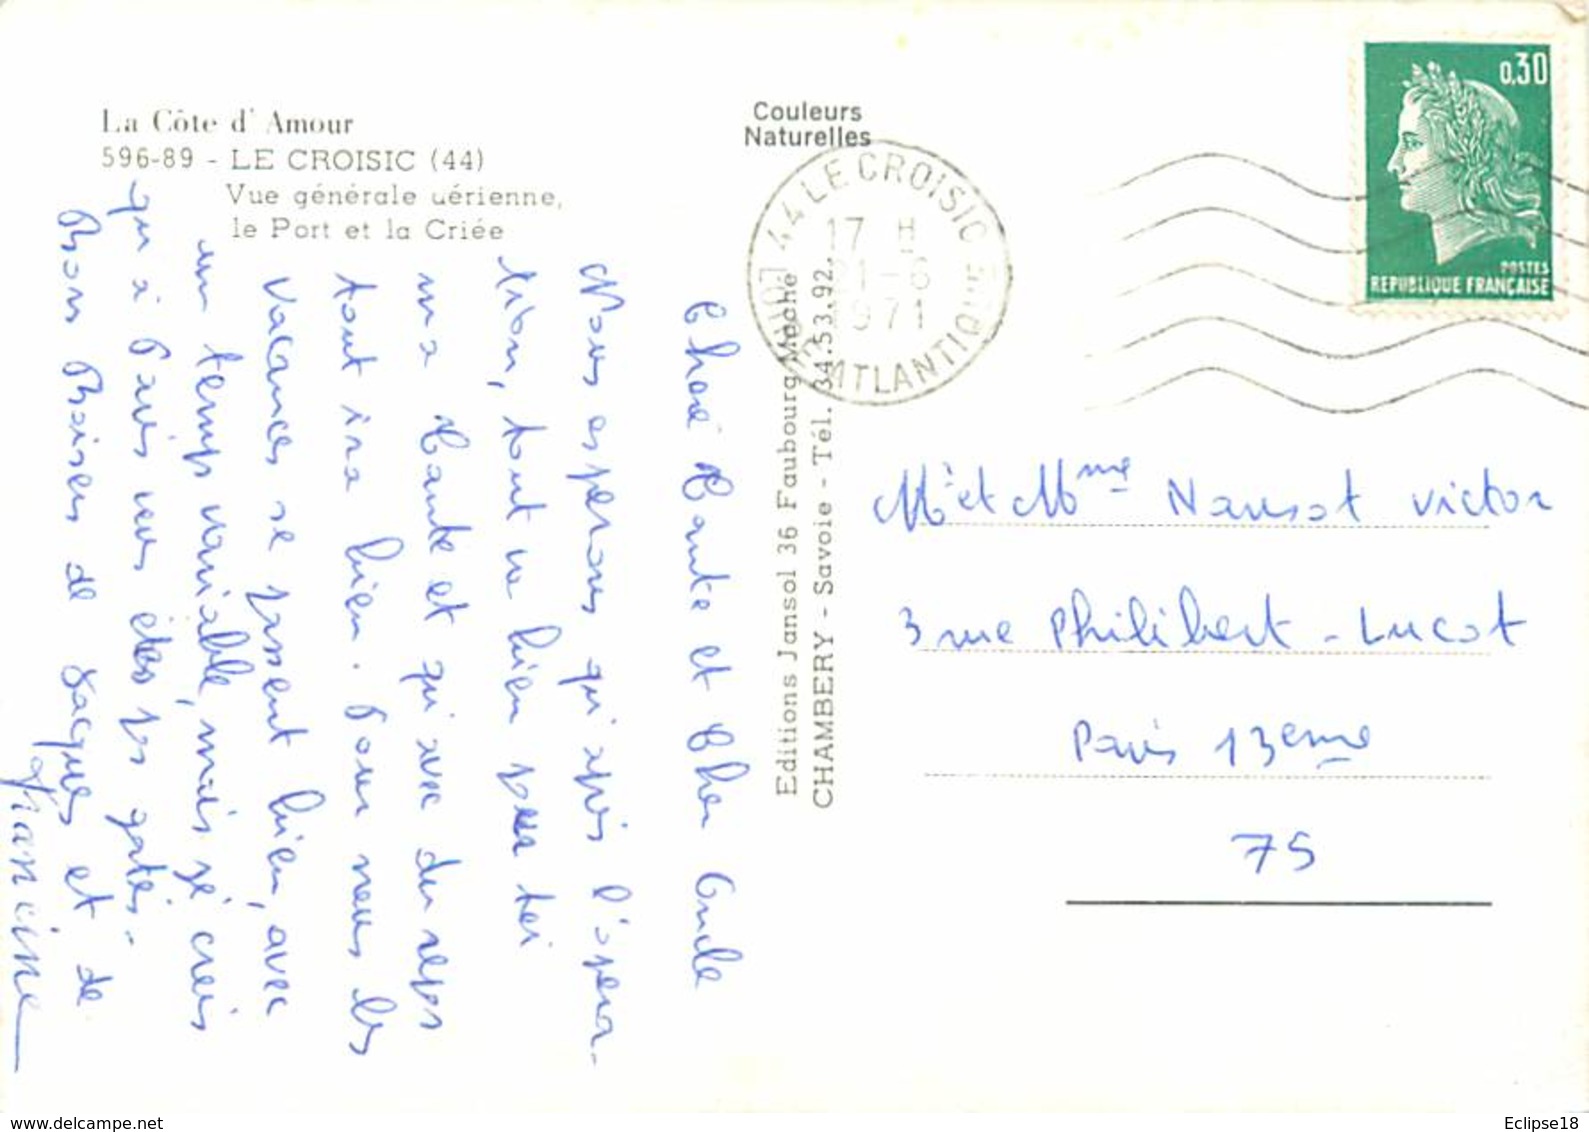 La Côte d'Amour
596-89 - LE CROISIC (44)
Vue générale aérienne,
le Port et la Criée
Couleurs
Naturelles
44 LE CROISIC
17 H
21-6
1971
LOIRE ATLANTIQUE
0,30
POSTES
REPUBLIQUE FRANÇAISE
Editions Jansol 36 Faubourg Mache
CHAMBERY - Savoie - Tél. 34.53.92.
Chere Tante et Cher Oncle
Nous esperons qu'apres l'opera-
tion, tout va bien pour toi
ma Tante et qu'avec du repos
tout ira bien. Pour nous les
vacances se passent bien, avec
un temps variable, mais je crois
qu'à Paris vous êtes pas gatés.
Bons Baisers de Jacques et de
Francine
Mr et Mme Nansot Victor
3 rue Philibert-Lucot
Paris 13eme
75
Eclipse18